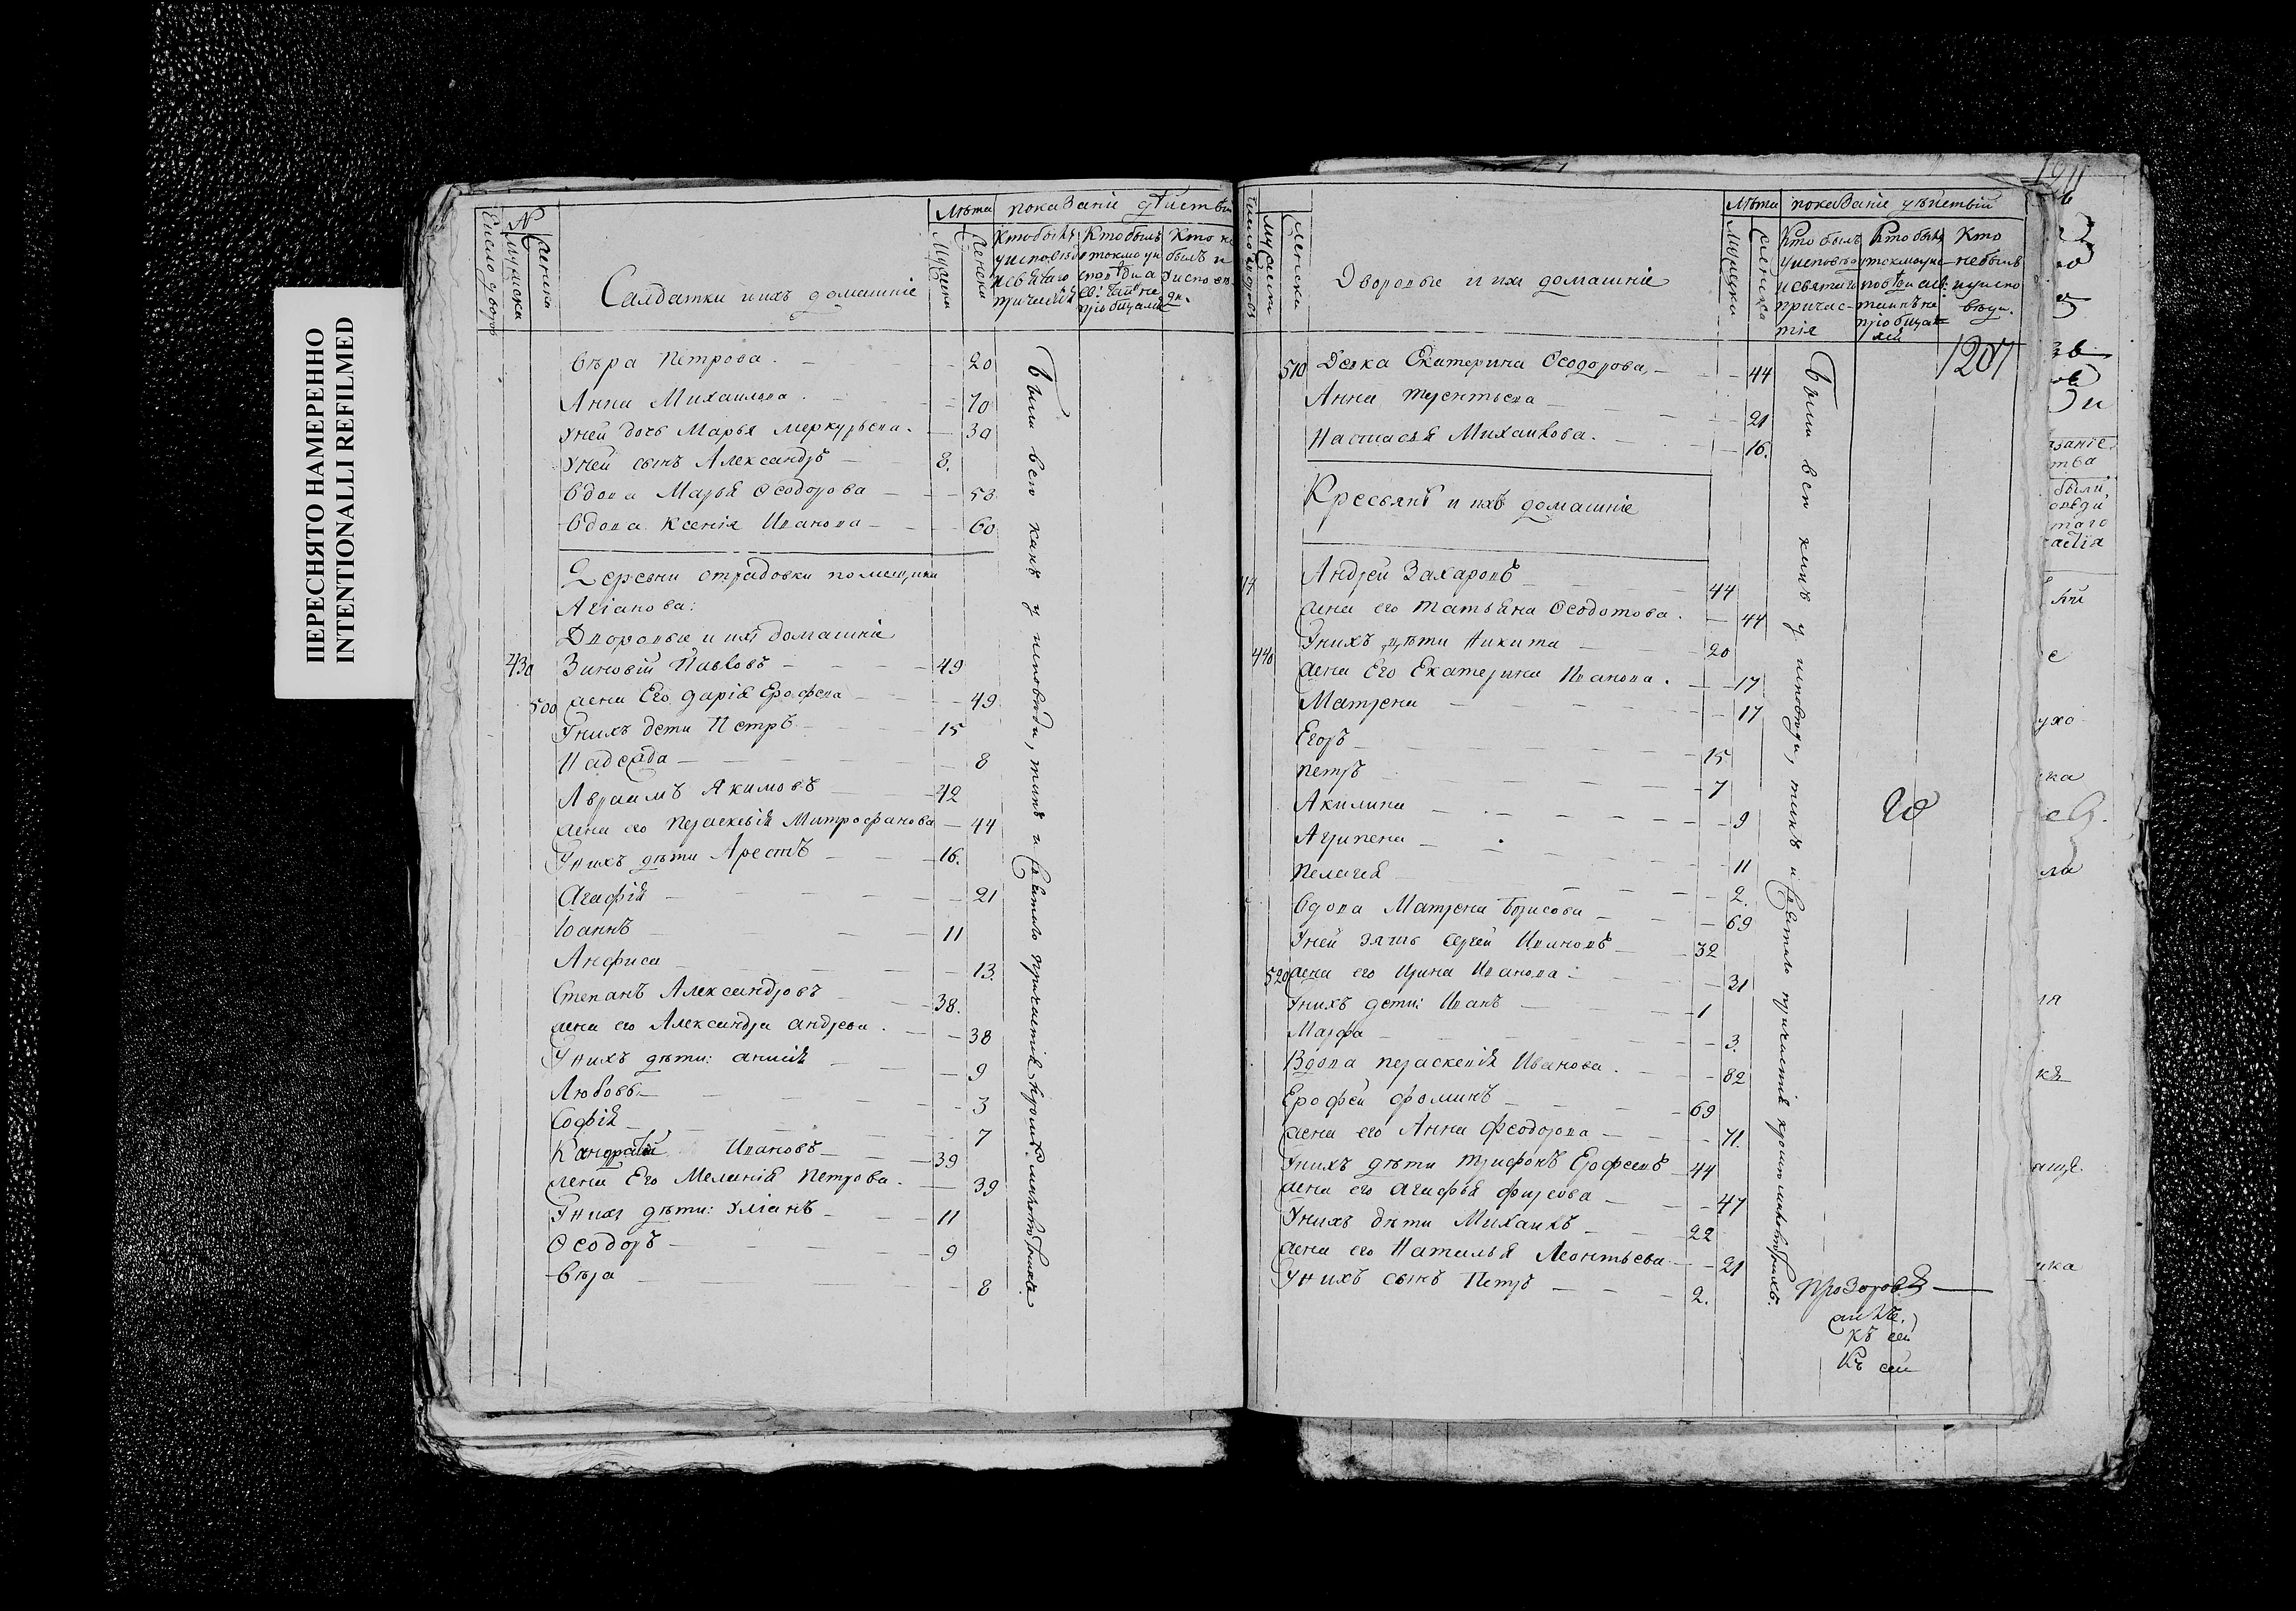 ПЕРЕСНЯТО НАМЕРЕННО
INTENTIONALLI REFILMED
Число дворовъ
№
мужеска
женска
Салдатки и ихъ домашніе
Лѣта
Мужеска
Женска
показаніе дѣиствій
Кто былъ у исповѣди и святаго причастія
Кто былъ токмо у исповѣди а св: таинъ не пріобщался
Кто не былъ и у исповѣди.
Вѣра Петрова. — 20
Анна Михаилова. — 70
У ней дочь Марья Меркурьева. — 30
У ней сынъ Александръ — 8.
Вдова Марья Ѳеодорова — 53
Вдова Ксенія Иванова — 60
Деревни Отрадовки помещика
Дворовые и ихъ домашніе
430 Зиновій Павловъ — 49
500 жена Его Дарія Ерофеева — 49
У нихъ дети Петръ — 15
Надежда — 8
Авраамъ Якимовъ — 42
жена его Параскевія Митрофанова — 44
У нихъ дѣти Арестъ — 16.
Агафія — 21
Іоаннъ — 11
Анфиса — 13.
Степанъ Александровъ — 38.
жена его Александра Андреева. — 38
У нихъ дѣти: Анисія — 9
Любовь — 3
Софія — 7
Кандратій Ивановъ — 39
жена Его Меланія Петрова. — 39
У нихъ дѣти: Уліанъ — 11
Ѳеодоръ — 9
Вѣра — 8
Были всѣ какъ у исповѣди, такъ и святаго причастія кромѣ малолѣтнихъ.
число дворовъ
мужеска
женска
Дворовые и ихъ домашніе
Лѣта
Мужеска
женска
показаніе дѣиствій
Кто былъ у исповѣди и святаго причастія
Кто былъ токмо у исповѣди а св: таинъ не пріобщался
Кто не былъ и у исповѣди.
1207
510 Девка Екатерина Ѳеодорова, — 44
Анна Терентьева — 21
Настасья Михаилова. — 16.
Кресьянѣ и ихъ домашніе
Андрей Захаровъ — 44
жена его Татьяна Ѳеодотова. — 44
У нихъ дѣти Никита — 20
440 жена Его Екатерина Иванова. — 17
Матрена — 17
Егоръ — 15
Петръ — 7
Акилина — 9
Агрипена — 11
Пелагея — 2.
Вдова Матрена Борисова — 69
У ней зять Сергей Ивановъ — 32
520 жена его Ирина Иванова: — 31
У нихъ дети: Иванъ — 1
Марфа — 3.
Вдова Параскевія Иванова. — 82
Ерофей Фоминъ — 69
жена его Анна Феодорова — 71.
У нихъ дѣти Трифонъ Ерофеевъ — 44
жена его Агафья Фирсова — 47
У нихъ дѣти Михаилъ — 22
жена его Наталья Леонтьева — 21
У нихъ сынъ Петръ — 2.
Были всѣ какъ у исповѣди, такъ и святаго причастія кромѣ малолѣтнихъ.
20
къ сей
Къ сей